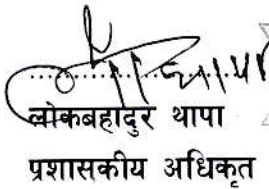 लोकबहादुर थापा
प्रशासकीय अधिकृत